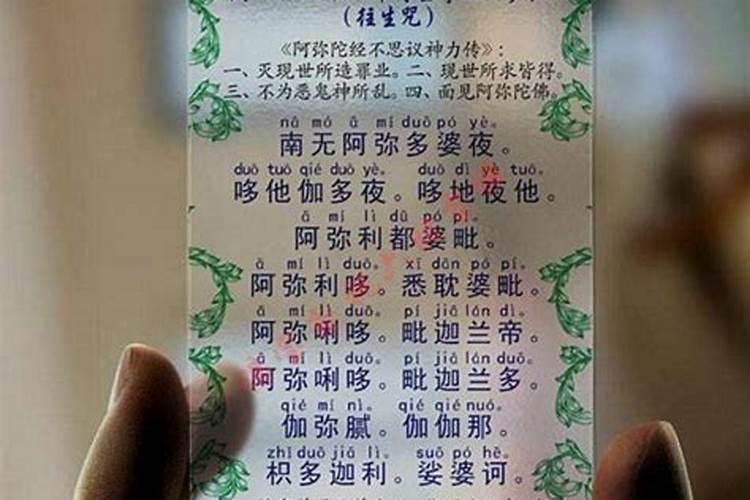 （往生咒）
《阿弥陀经不思议神力传》：
一、灭现世所造罪业。二、现世所求皆得。
三、不为恶鬼神所乱。四、面见阿弥陀佛。
nā mó ā mí duō pó yè。
南无阿弥多婆夜。
duō tuō qié duō yè。 duō dì yè tuō。
哆他伽多夜。哆地夜他。
ā mí lì dū pó pí。
阿弥利都婆毗。
ā mí lì duō。 xī dān pó pí。
阿弥利哆。悉耽婆毗。
ā mí lì duō。 pí jiā lán dì。
阿弥唎哆。毗迦兰帝。
ā mí lì duō。 pí jiā lán duō。
阿弥唎哆。毗迦兰多。
qié mí nì。 qié qié nuó。
伽弥腻。伽伽那。
zhǐ duō jiā lì。 suō pó hē。
枳多迦利。娑婆诃。